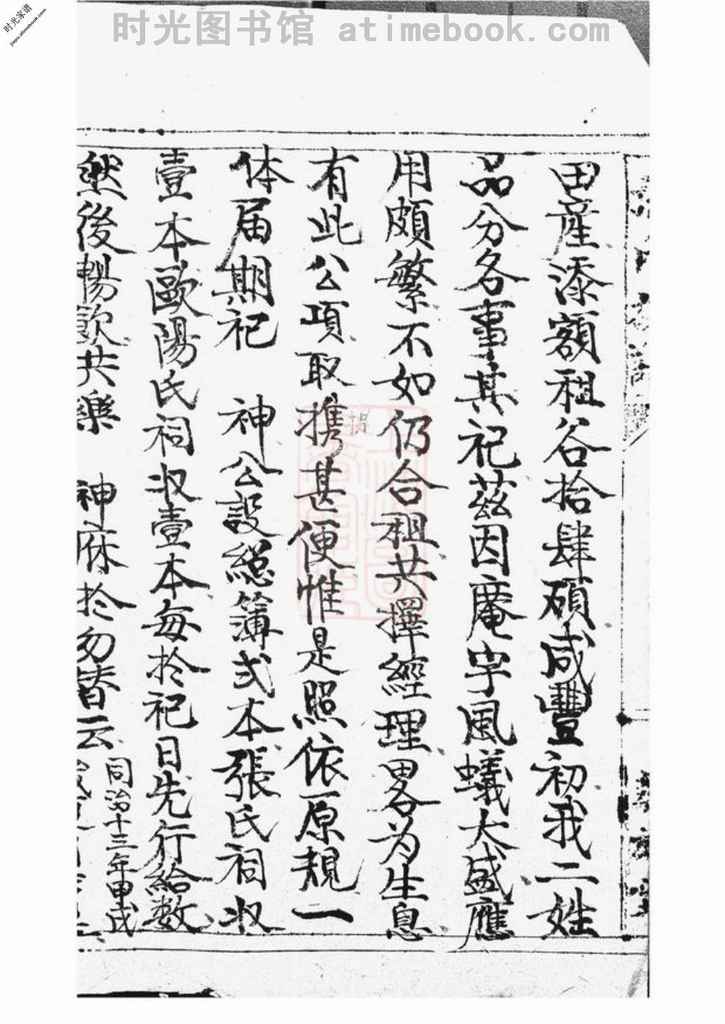 时光图书馆 atimebook.com
时光家谱
田産漆額租谷拾肆碩咸豐初我二姓
品分各事其祀茲因庵宇風蟻大盛應
用頗繁不如仍合租共擇經理畧为生息
有此公項取携甚便惟是照依原規一
体届期祀 神公設總簿弍本張氏祠収
壹本歐陽氏祠収壹本每於祀日先行給数
然後暢飲共樂 神庥於勿替云
同治十三年甲戌